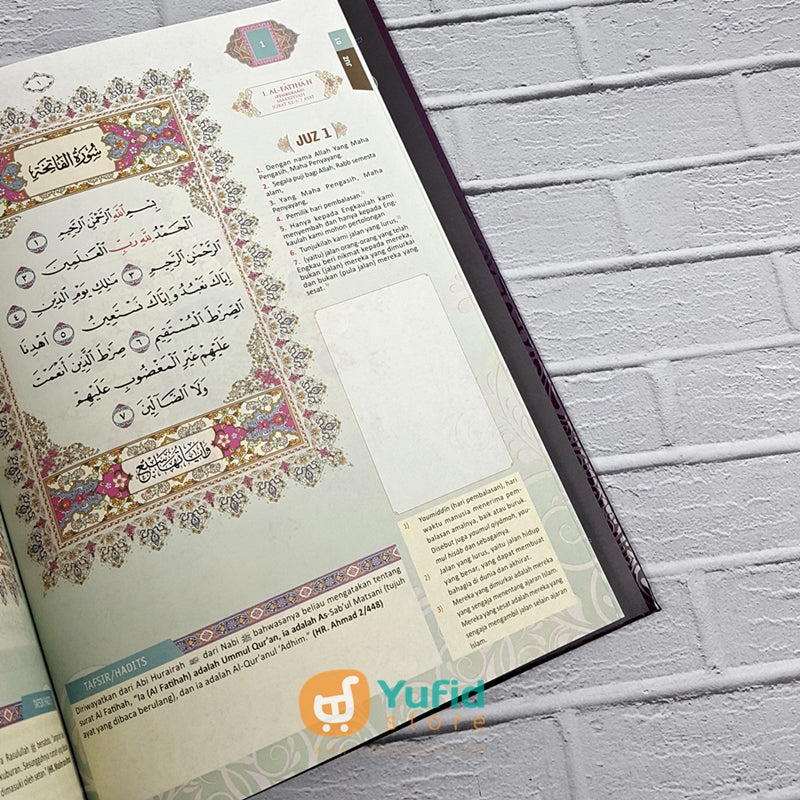 1
01
JUZ
1. AL-FĀTIḤAH
(PEMBUKAAN)
MAKKIYYAH
SURAT KE-1: 7 AYAT
JUZ 1
1. Dengan nama Allah Yang Maha
Pengasih, Maha Penyayang.
2. Segala puji bagi Allah, Rabb semesta
alam.
3. Yang Maha Pengasih, Maha
Penyayang,
4. Pemilik hari pembalasan.¹⁾
5. Hanya kepada Engkaulah kami
menyembah dan hanya kepada Eng-
kaulah kami mohon pertolongan
6. Tunjukilah kami jalan yang lurus,²⁾
7. (yaitu) jalan orang-orang yang telah
Engkau beri nikmat kepada mereka,
bukan (jalan) mereka yang dimurkai
dan bukan (pula jalan) mereka yang
sesat.³⁾
سُورَةُ الفَاتِحَةِ
بِسْمِ ٱللَّهِ ٱلرَّحْمَٰنِ ٱلرَّحِيمِ ١
ٱلْحَمْدُ لِلَّهِ رَبِّ ٱلْعَٰلَمِينَ ٢
ٱلرَّحْمَٰنِ ٱلرَّحِيمِ ٣ مَٰلِكِ يَوْمِ ٱلدِّينِ ٤
إِيَّاكَ نَعْبُدُ وَإِيَّاكَ نَسْتَعِينُ ٥ ٱهْدِنَا
ٱلصِّرَٰطَ ٱلْمُسْتَقِيمَ ٦ صِرَٰطَ ٱلَّذِينَ أَنْعَمْتَ
عَلَيْهِمْ غَيْرِ ٱلْمَغْضُوبِ عَلَيْهِمْ
وَلَا ٱلضَّآلِّينَ ٧
وَآيَاتُهَا سَبْع
1) Youmiddin (hari pembalasan), hari
waktu manusia menerima pem-
balasan amalnya, baik atau buruk.
Disebut juga youmul qiyāmah, you-
mul hisāb dan sebagainya.
2) Jalan yang lurus, yaitu jalan hidup
yang benar, yang dapat membuat
bahagia di dunia dan akhirat.
3) Mereka yang dimurkai adalah mereka
yang sengaja menentang ajaran Islam.
Mereka yang sesat adalah mereka yang
sengaja mengambil jalan selain ajaran
Islam.
TAFSIR/HADITS
Diriwayatkan dari Abi Hurairah dari Nabi ﷺ bahwasanya beliau mengatakan tentang
surat Al Fatihah, "Ia (Al Fatihah) adalah Ummul Qur'an, ia adalah As-Sab'ul Matsani (tujuh
ayat yang dibaca berulang), dan ia adalah Al-Qur'anul 'Adhim." (HR. Ahmad 2/448)
Rasulullah ﷺ bersabda,
kuburan. Sesungguhnya
dimasuki oleh setan."
Yufid
store